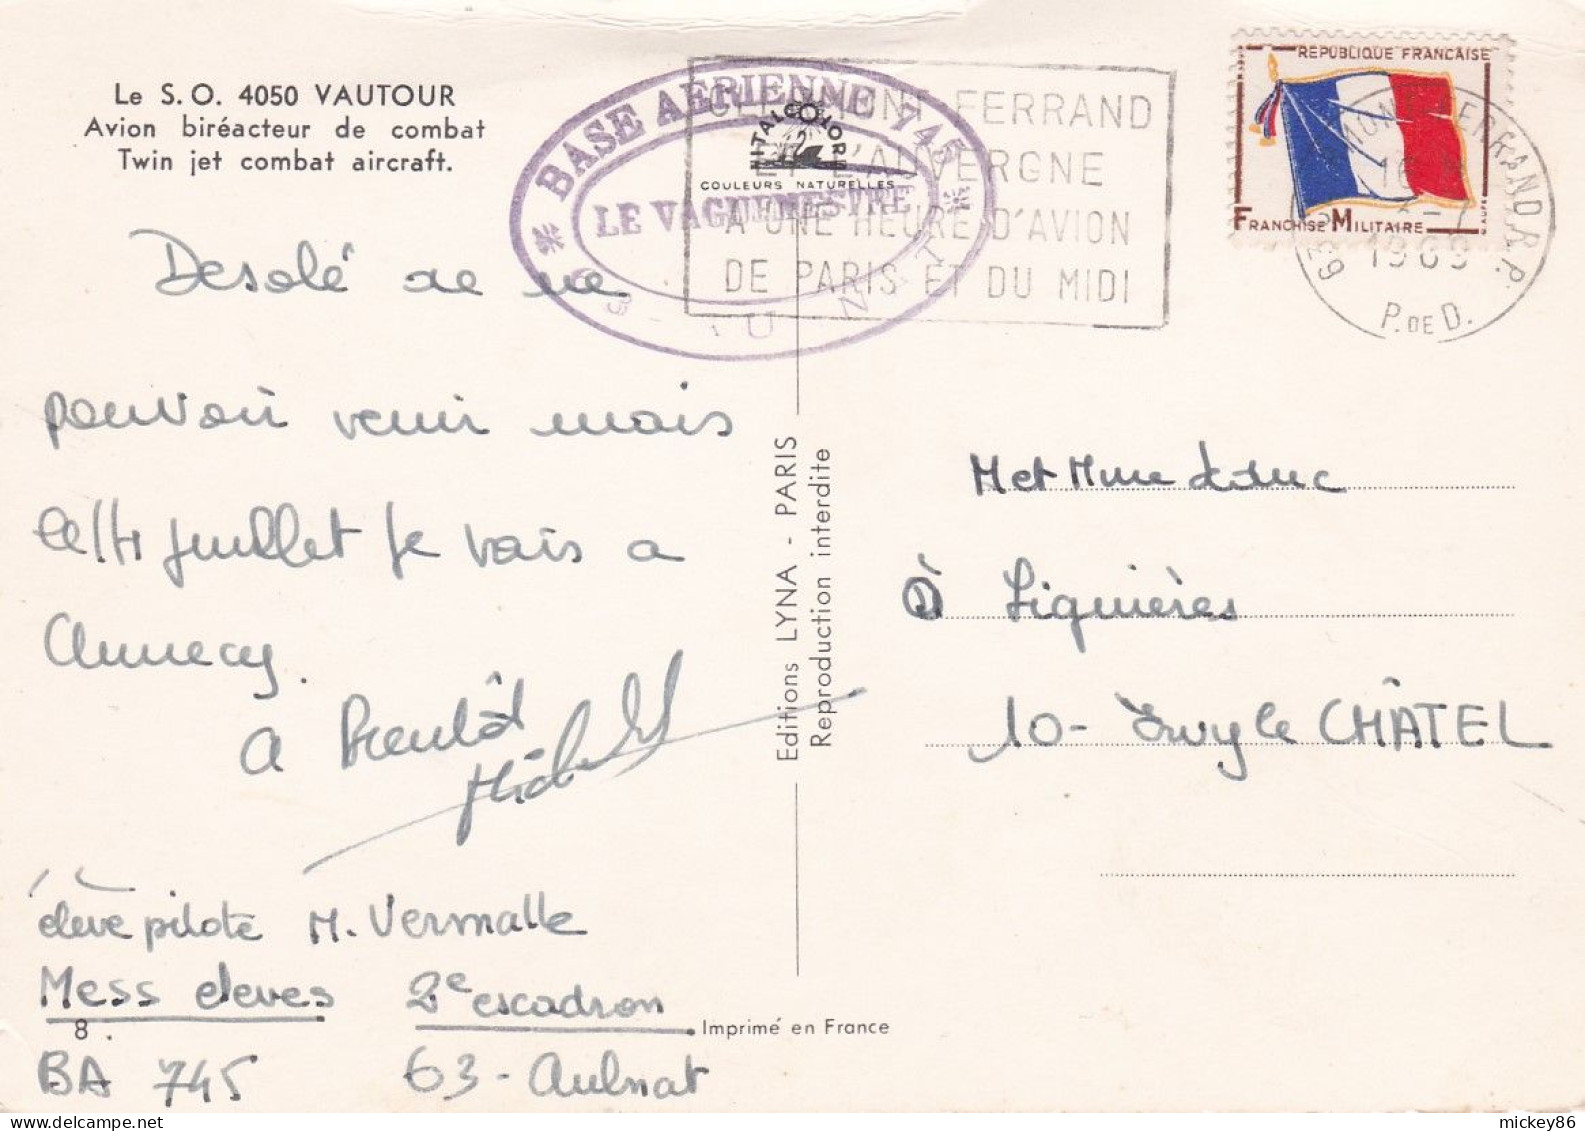 Le S.O. 4050 VAUTOUR
Avion biréacteur de combat
Twin jet combat aircraft.
BASE AERIENNE 745
LE VAGUEMESTRE
ITALCOLOR
COULEURS NATURELLES
CLERMONT FERRAND
ET L'AUVERGNE
A UNE HEURE D'AVION
DE PARIS ET DU MIDI
REPUBLIQUE FRANCAISE
FRANCHISE MILITAIRE
63 CLERMONT FERRAND R.P.
1969
P. DE D.
Desolé de ne
pouvoir venir mais
le 14 juillet je vais a
Annecy.
A bientôt
Michel
élève pilote M. Vermalle
Mess eleves 2e escadron
BA 745 63 - Aulnat
8
Imprimé en France
Editions LYNA - PARIS
Reproduction interdite
M et Mme Leduc
à Lignières
10 - Ervy le CHÂTEL
mickey86
delcampe.net